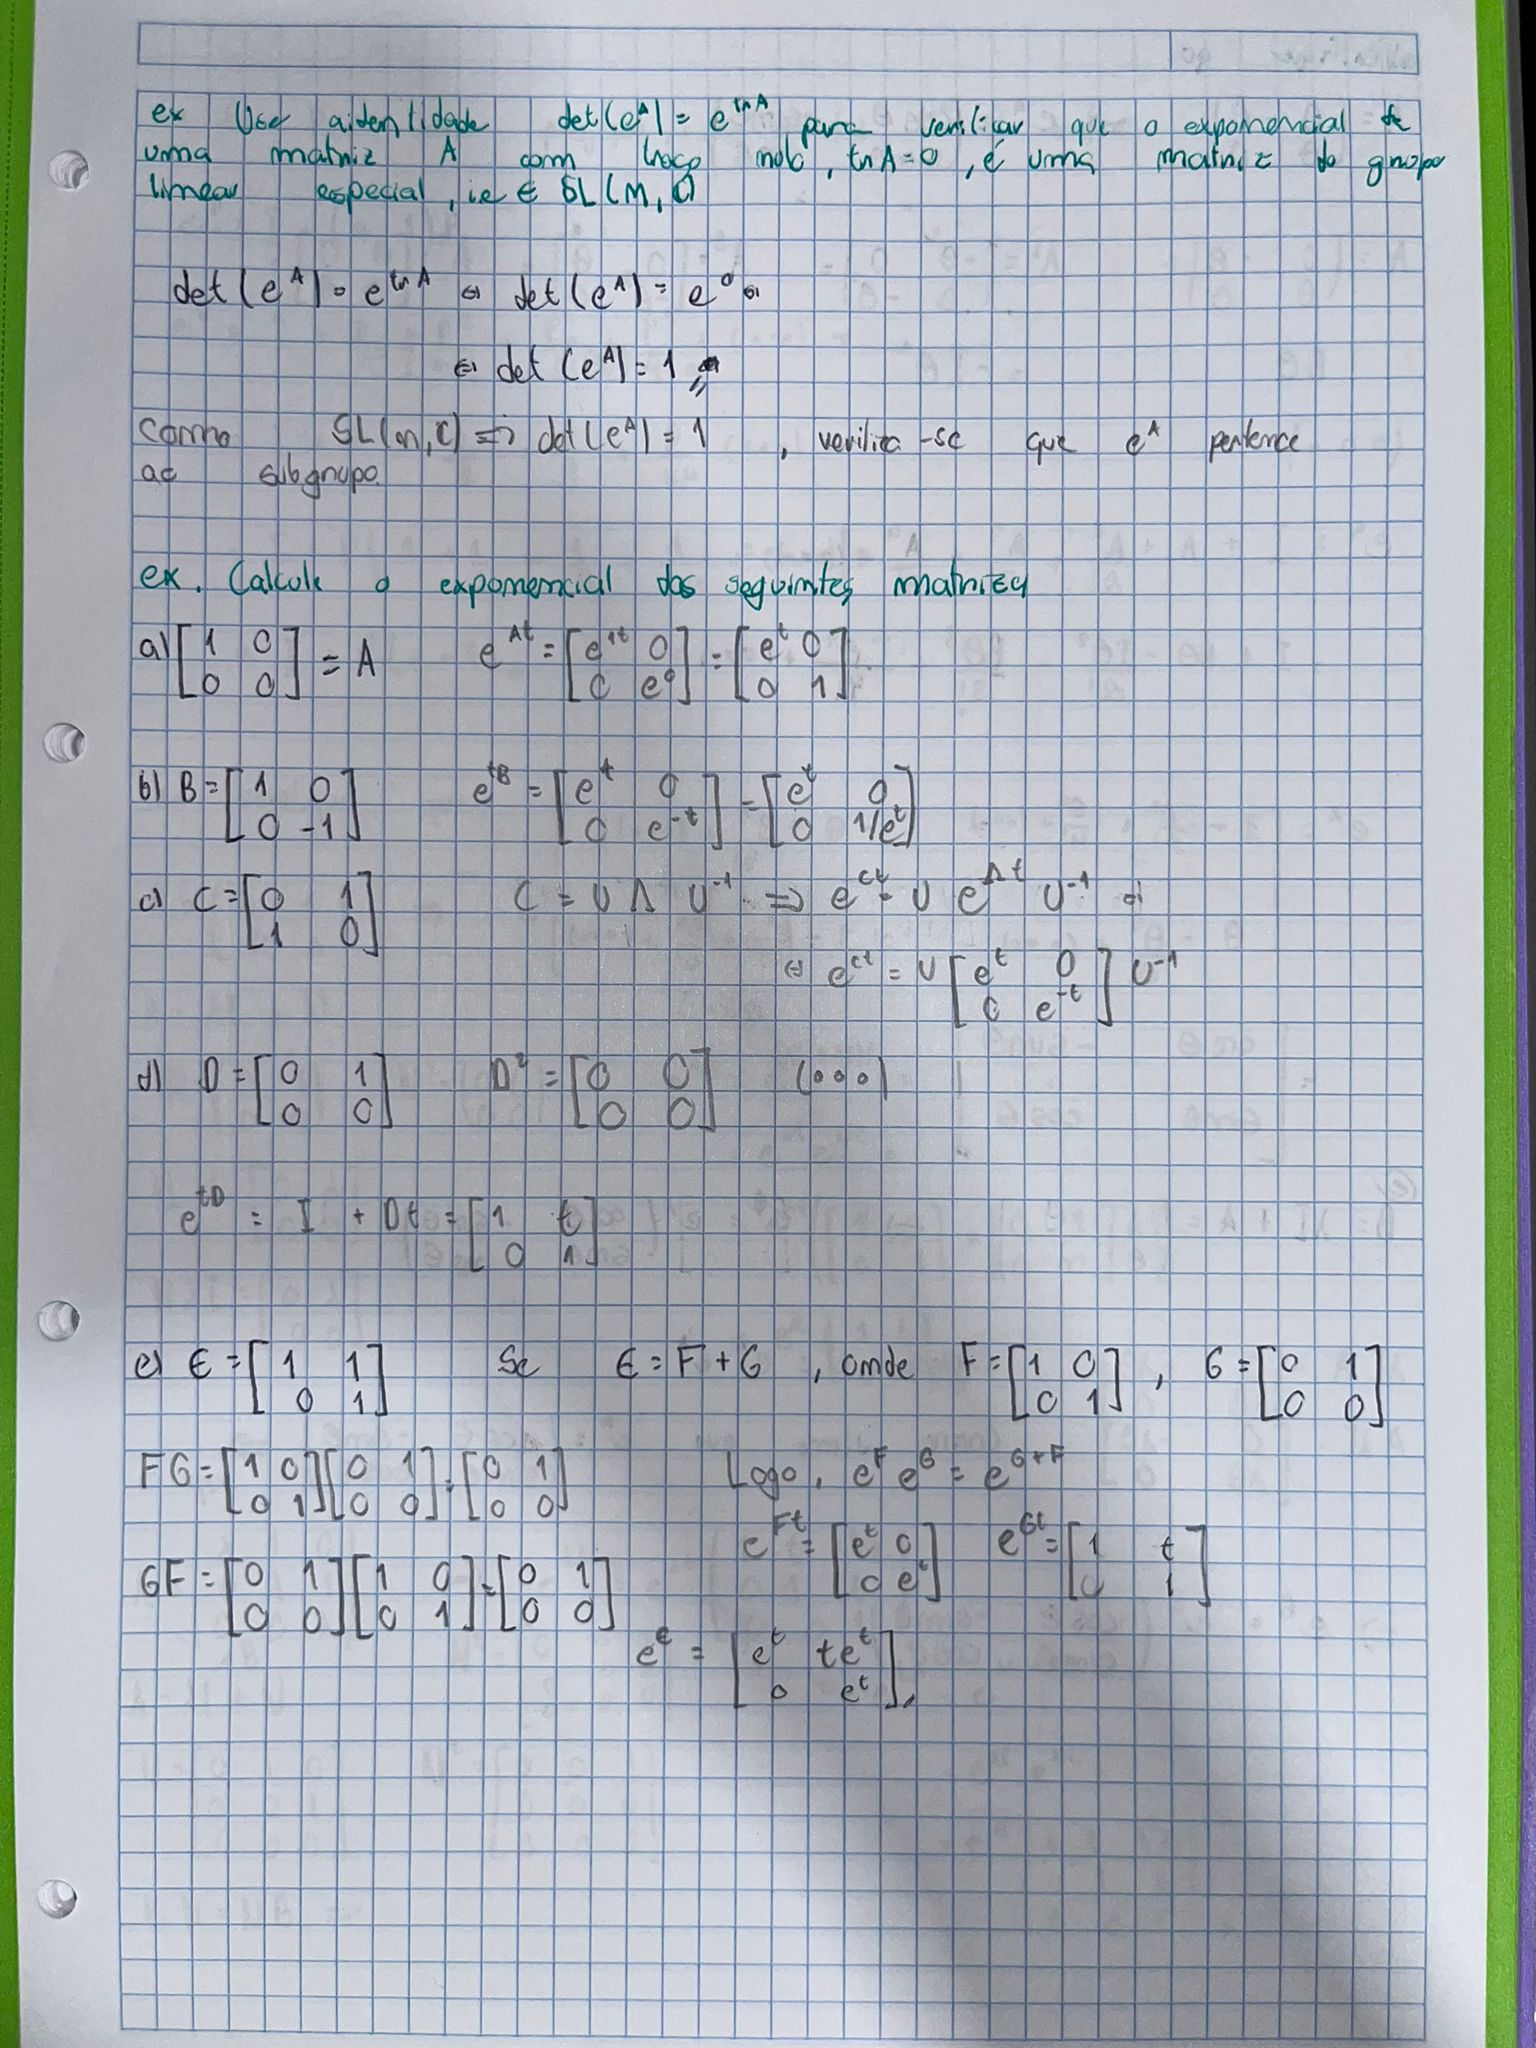 ex Use a identidade det(e^A) = e^{tr A} para verificar que o exponencial de
uma matriz A com traço nulo, tr A = 0, é uma matriz do grupo
linear especial, i.e ∈ SL(n, C)
det(e^A) = e^{tr A} ⇔ det(e^A) = e^0 ⇔
⇔ det(e^A) = 1 //
como SL(n, C) ⇒ det(e^A) = 1, verifica-se que e^A pertence
ao subgrupo.
ex. Calcule o exponencial das seguintes matrizes
a) [1 0; 0 0] = A e^{At} = [e^{1t} 0; 0 e^0] = [e^t 0; 0 1]
b) B = [1 0; 0 -1] e^{tB} = [e^t 0; 0 e^{-t}] = [e^t 0; 0 1/e^t]
c) C = [0 1; 1 0] C = U Λ U^{-1} ⇒ e^{Ct} = U e^{Λt} U^{-1} ⇔
⇔ e^{Ct} = U [e^t 0; 0 e^{-t}] U^{-1}
d) D = [0 1; 0 0] D² = [0 0; 0 0] (...)
e^{tD} = I + Dt = [1 t; 0 1]
e) E = [1 1; 0 1] Se E = F + G, onde F = [1 0; 0 1], G = [0 1; 0 0]
FG = [1 0; 0 1][0 1; 0 0] = [0 1; 0 0] Logo, e^F e^G = e^{G+F}
e^{Ft} = [e^t 0; 0 e^t] e^{Gt} = [1 t; 0 1]
GF = [0 1; 0 0][1 0; 0 1] = [0 1; 0 0]
e^E = [e^t te^t; 0 e^t]//